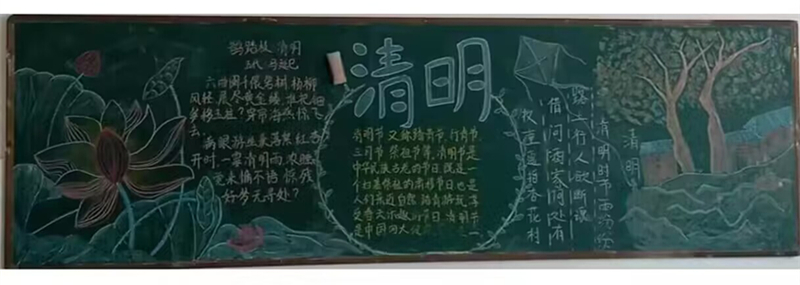 鹊踏枝 清明
五代 冯延巳
六曲阑干偎碧树 杨柳
风轻 展尽黄金缕 谁把钿
筝移玉柱？穿帘海燕惊飞
去
满眼游丝兼落絮 红杏
开时 一霎清明雨 浓睡
觉来慵不语 惊残
好梦无寻处？
清明
清明节又称踏青节、行青节、
三月节、祭祖节等，清明节是
中华民族古老的节日 既是一
个扫墓祭祖的肃穆节日也是
人们亲近自然 踏青游玩 享
受春天乐趣的节日 清明节
是中国四大
清明
清明时节雨纷纷
路上行人欲断魂
借问酒家何处有
牧童遥指杏花村